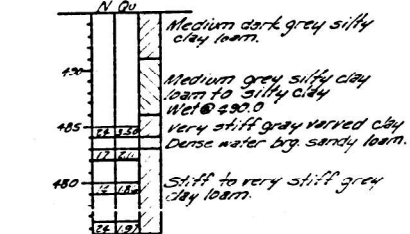 N Qu
Medium dark grey silty
clay loam.
490
Medium grey silty clay
loam to silty clay
Wet@490.0
485
24 3.50
Very stiff gray varved clay
Dense water brg. sandy loam.
17
480
Stiff to very stiff grey
clay loam.
24 1.97